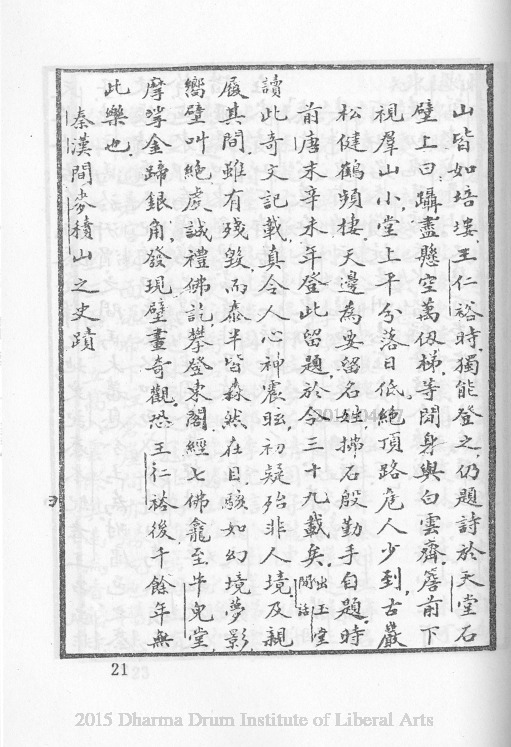 山皆如培塿。王仁裕時獨能登之。仍題詩於天堂石
壁上曰。躡盡懸空萬仭梯。等閒身與白雲齊。簷前下
視羣山小。堂上平分落日低。絕頂路危人少到。古巖
松健鶴頻棲。天邊為要留名姓。拂石殷勤手自題。時
前唐末辛未年登此留題。於今三十九載矣。出玉堂閒話
讀此奇文記載。真令人心神震眩。初疑殆非人境。及親
履其間。雖有殘毀。而泰半皆森然在目。駭如幻境夢影。
嚮壁叫絕。虔誠禮佛訖。攀登東閣。經七佛龕至牛兒堂。
摩挲金蹄銀角。發現壁畫奇觀。恐王仁裕後。千餘年無
此樂也。
秦漢間麥積山之史蹟
21
2015 Dharma Drum Institute of Liberal Arts